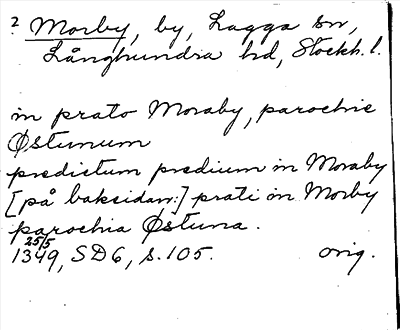 ? Morby, by, Lagga sn,
Långhundra hd, Stockh. l.
in prato Moraby, parochie
Østunum
predictum predium in Moraby
[på baksidan:] prati in Morby
parochia Østuna.
25/5
1349, SD6, s. 105. orig.